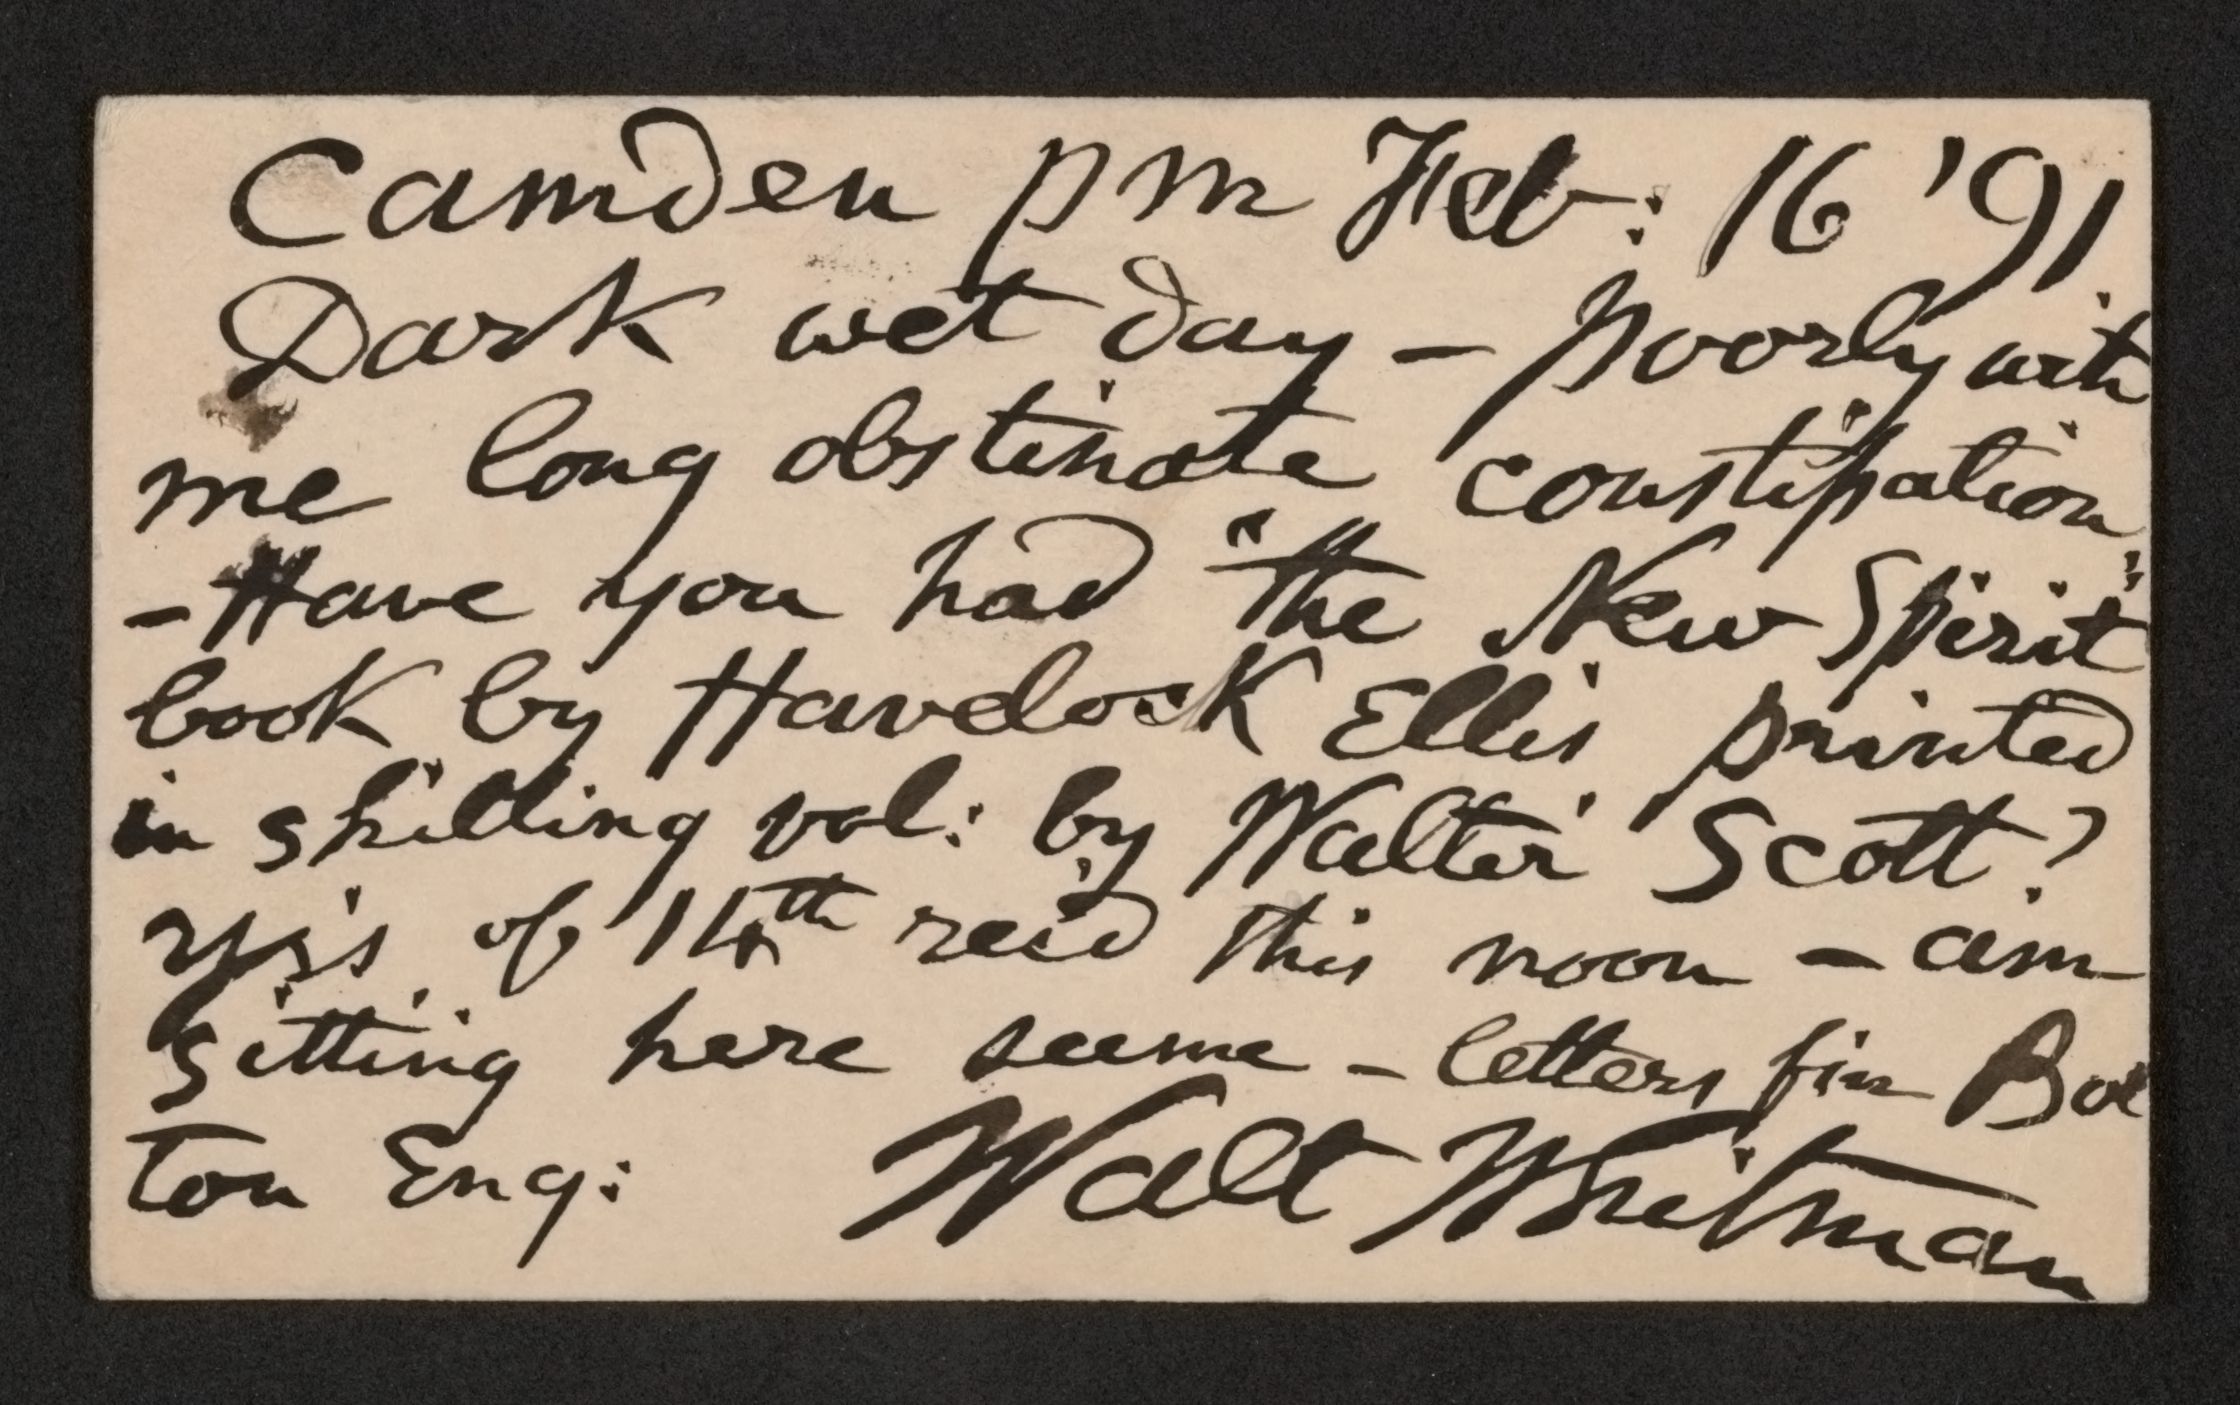 Camden pm Feb: 16 '91
Dark wet day — poorly with
me long obstinate constipation
— Have you had "the New Spirit"
book by Havelock Ellis printed
in shilling vol: by Walter Scott?
y'rs of 14th rec'd this noon — am
sitting here same — letters f'm Bol
ton Eng:
Walt Whitman